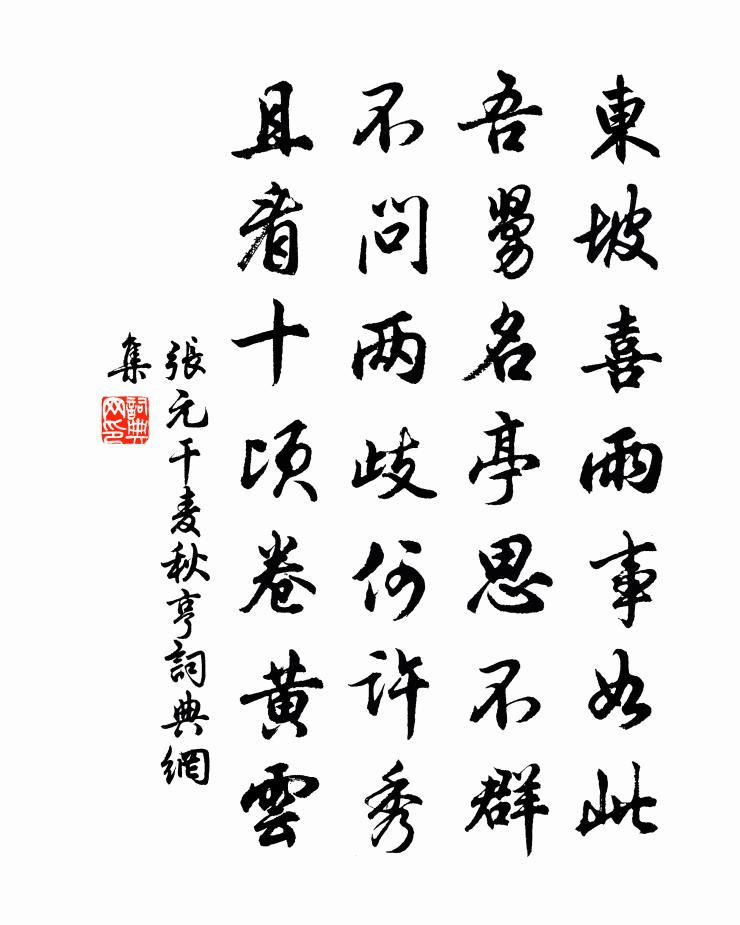 東坡喜雨事如此
吾舅名亭思不群
不問兩歧何許秀
且看十頃卷黃雲
張元干麦秋亭詞典網
集
詞典
网印